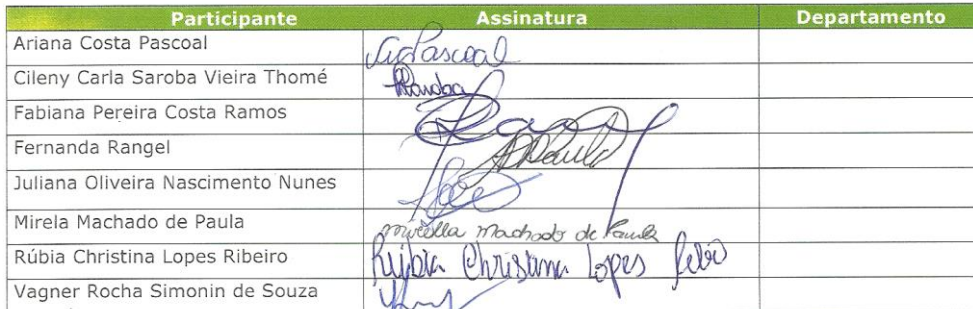 Participante Assinatura Departamento
Ariana Costa Pascoal Pascoal
Cileny Carla Saroba Vieira Thomé
Fabiana Pereira Costa Ramos
Fernanda Rangel
Juliana Oliveira Nascimento Nunes
Mirela Machado de Paula Machado de Paula
Rúbia Christina Lopes Ribeiro Rúbia Christina Lopes
Vagner Rocha Simonin de Souza